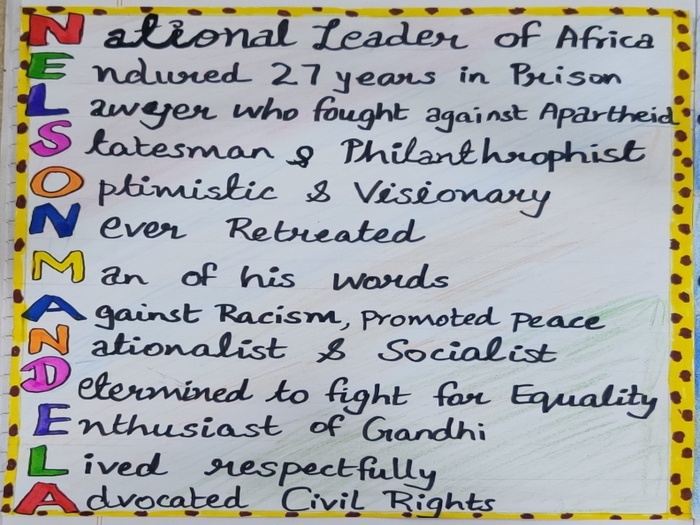 National Leader of Africa
Endured 27 years in Prison
Lawyer who fought against Apartheid
Statesman & Philanthrophist
Optimistic & Visionary
Never Retreated
Man of his words
Against Racism, promoted peace
Nationalist & Socialist
Determined to fight for Equality
Enthusiast of Gandhi
Lived respectfully
Advocated Civil Rights